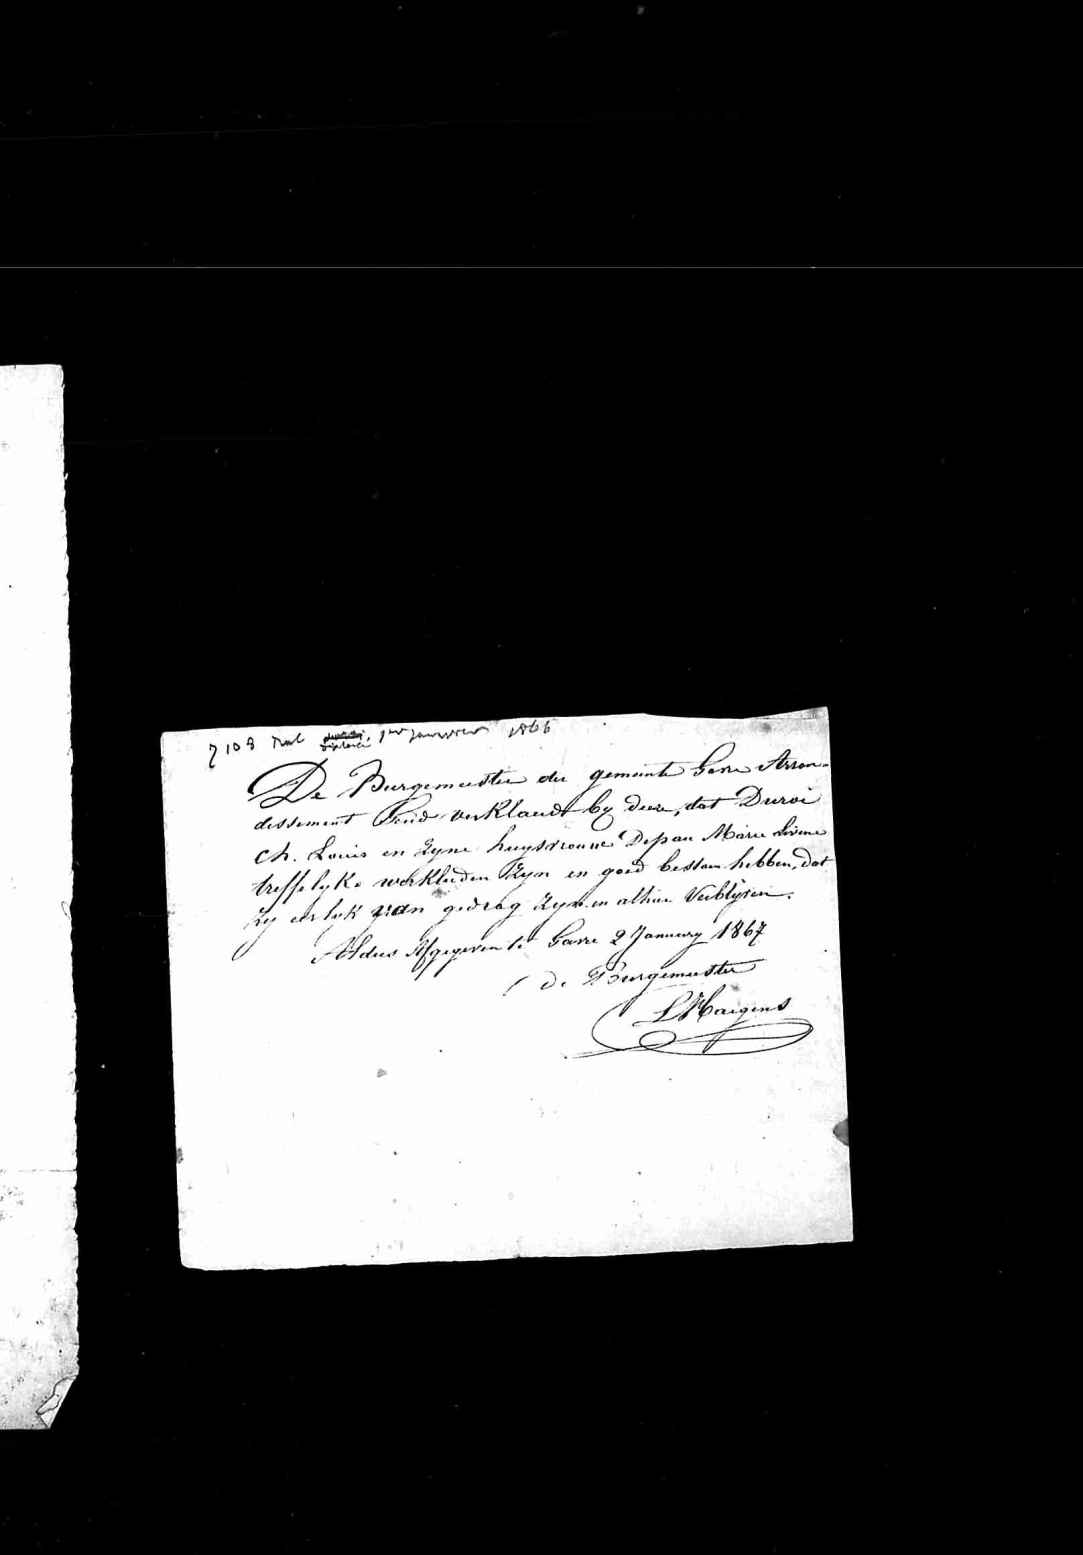 7103 1er Janvier 1866
De Burgemeester der gemeente Gavre Arron-
dissement Gend verklaerdt by deze, dat Duroi
Ch. Louis en zyne huysvrouwe Depau Marie Livine
treffelyke werklieden zyn en goed bestaen hebben, dat
zy eerlyk van gedrag zyn en alhier verblyven.
Aldus Afgegeven te Gavre 2 January 1867
de Burgemeester